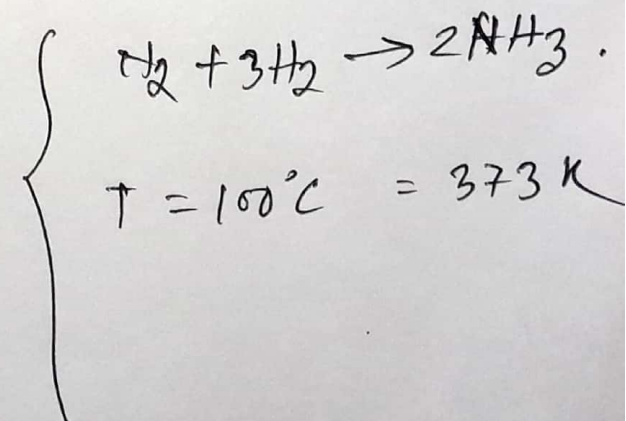 N₂ + 3H₂ → 2NH₃.
T = 100°C = 373 K